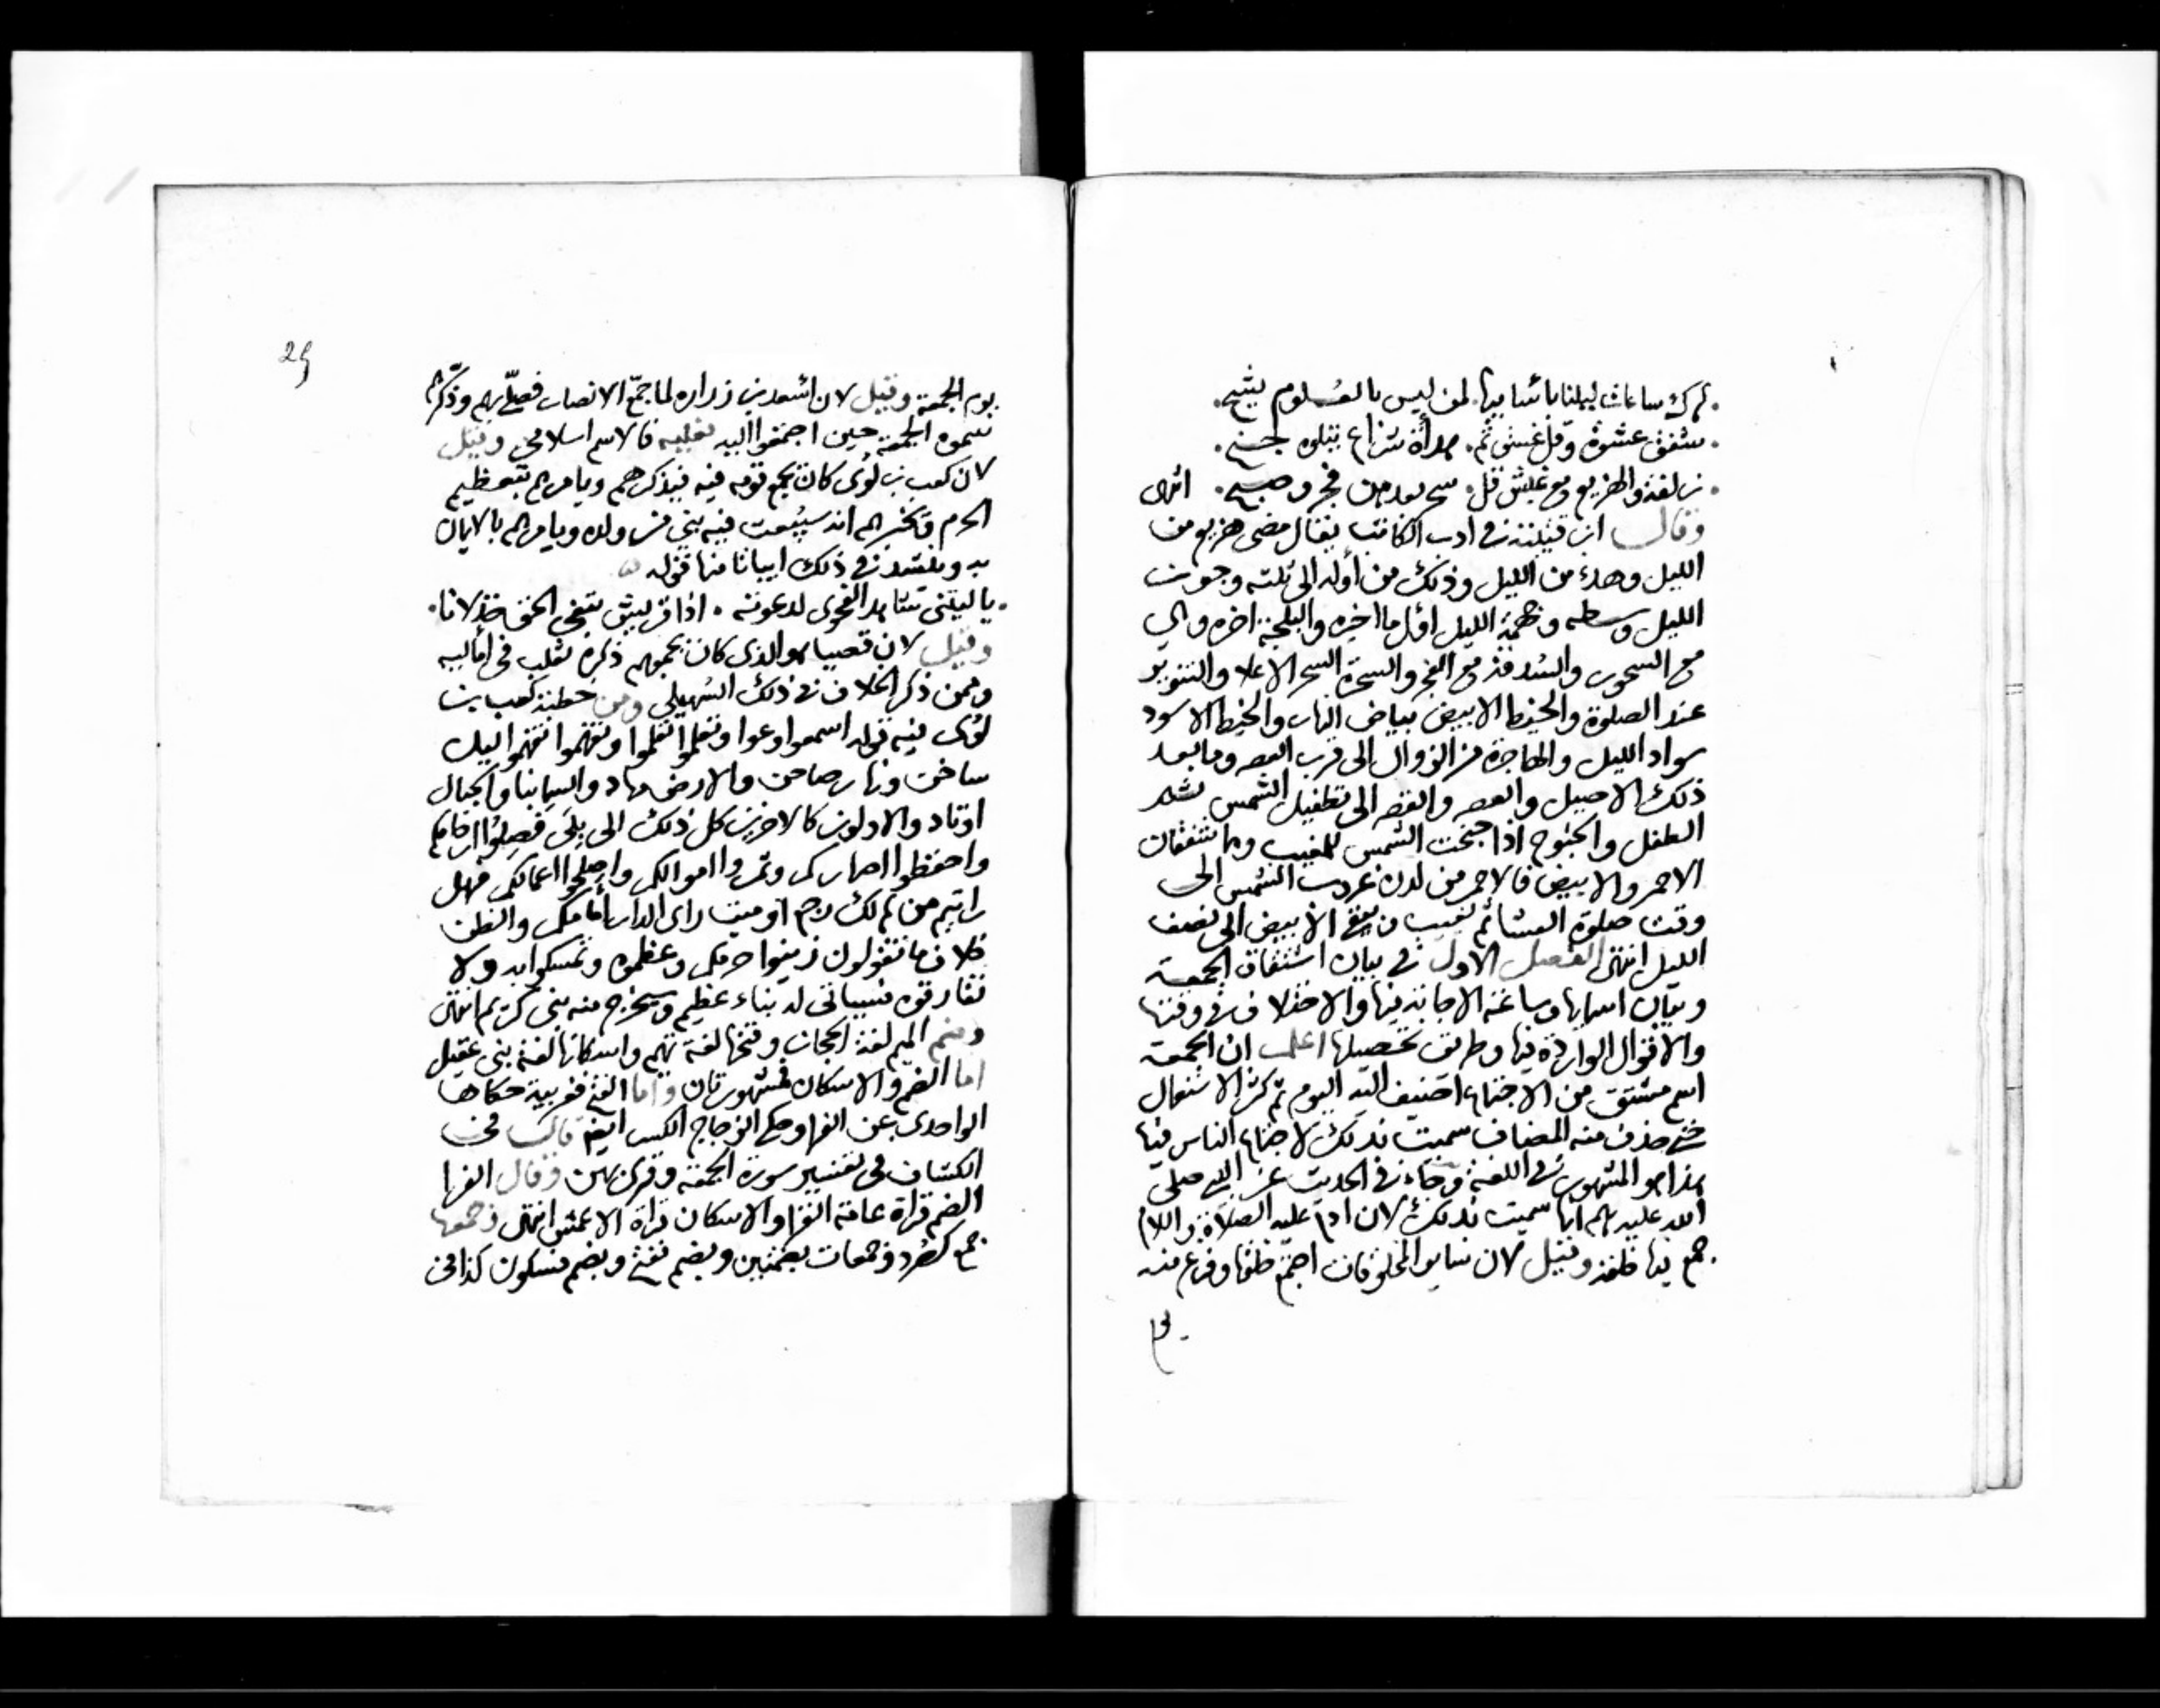 ساعات ليلنا باسمائها لمن ليس بالعلوم يشح
شفق عشوة وقل غسق ثم هدأة شراع يتلوه جنح
زلفة والهزيع مع غبش قل سحر بعد من فجر وصبح انتهى
وقال ابن قتيبة في ادب الكاتب يقال مضى هزيع من
الليل وهدء من الليل وذلك من أوله الى ثلثه وجوز
الليل وسطه وجهمة الليل أول ما اخيره والبلجة اخره وهي
مع السحور والسدفة مع الفجر والسحرة السحر الاعلا والتنوير
عند الصلوة والخيط الابيض بياض النهار والخيط الاسود
سواد الليل والهاجرة من الزوال الى قرب العصر وما بعد
ذلك الاصيل والعصر والقصر الى تطفيل الشمس ثم
الطفل والجنوح اذا جنحت الشمس للمغيب وهما شفقان
الاحمر والابيض فالاحمر من لدن غروب الشمس الى
وقت صلوة العشا ثم يغيب ويبقى الابيض الى نصف
الليل انتهى الفصل الاول في بيان اشتقاق الجمعة
وبيان اسمايها وساعة الاجابة فيها والاختلاف في وقتها
والاقوال الواردة فيها وطريق تحصيلها اعلم ان الجمعة
اسم مشتق من الاجتماع اضيف اليه اليوم ثم كثر الاستعمال
حتى حذف منه المضاف سميت بذلك لاجتماع الناس فيها
هذا هو المشهور في اللغة وجاء في الحديث عن النبي صلى
الله عليه وسلم انها سميت بذلك لان ادم عليه الصلاة والسلام
جمع فيها خلقه وقيل لان ساير المخلوقات اجتمع خلقها وفرغ منه
يوم
29
يوم الجمعة وقيل لان اسعد بن زراره لما جمع الانصار فصلى بهم وذكرهم
سموه الجمعة حين اجتمعوا اليه فالاسم اسلامي وقيل
لان كعب بن لؤى كان يجمع قومه فيه فيذكرهم ويامرهم بتعظيم
الحرم ويخبرهم انه سيبعث فيه نبي من ولده ويامرهم بالايمان
به وينشد في ذلك ابياتا منها قوله
يا ليتني شاهد الفحوى لدعوته اذا قريش تبغي الحق خذلانا
وقيل لان قصيا هو الذى كان يجمعهم ذكره ثعلب في أماليه
وممن ذكر الخلاف في ذلك السهيلي ومن خطبة كعب بن
لؤى فيه قوله اسمعوا وعوا وتعلموا تعلموا وتفهموا تفهموا ليل
ساج ونهار صاح والارض مهاد والسما بنا والجبال
اوتاد والاولون كالاخرين كل ذلك الى بلى فصلوا ارحامكم
واحفظوا اصهاركم وثمروا اموالكم واصلحوا اعمالكم فهل
رايتم من هالك رجع او ميت الدار أمامكم والظن
خلاف ما تقولون زينوا حرمكم وعظموه وتمسكوا به ولا
تفارقوه فسياتي له بناء عظيم وسيخرج منه نبي كريم انتهى
وضم الميم لغة الحجاز وفتحها لغة تميم واسكانها لغة بني عقيل
اما الضم والاسكان فمشهورتان واما الفتح فغريبة حكاها
الواحدى عن الفرا وحكى الزجاج الكسر ايضا قال في
الكشاف في تفسير سورة الجمعة وقرئ بهن وقال الفرا
الضم قراة عامة القرا والاسكان قراة الاعمش انتهى وجمعها
جمع كصرد وجمعات بضمتين وبضم ففتح وبضم فسكون كذا في